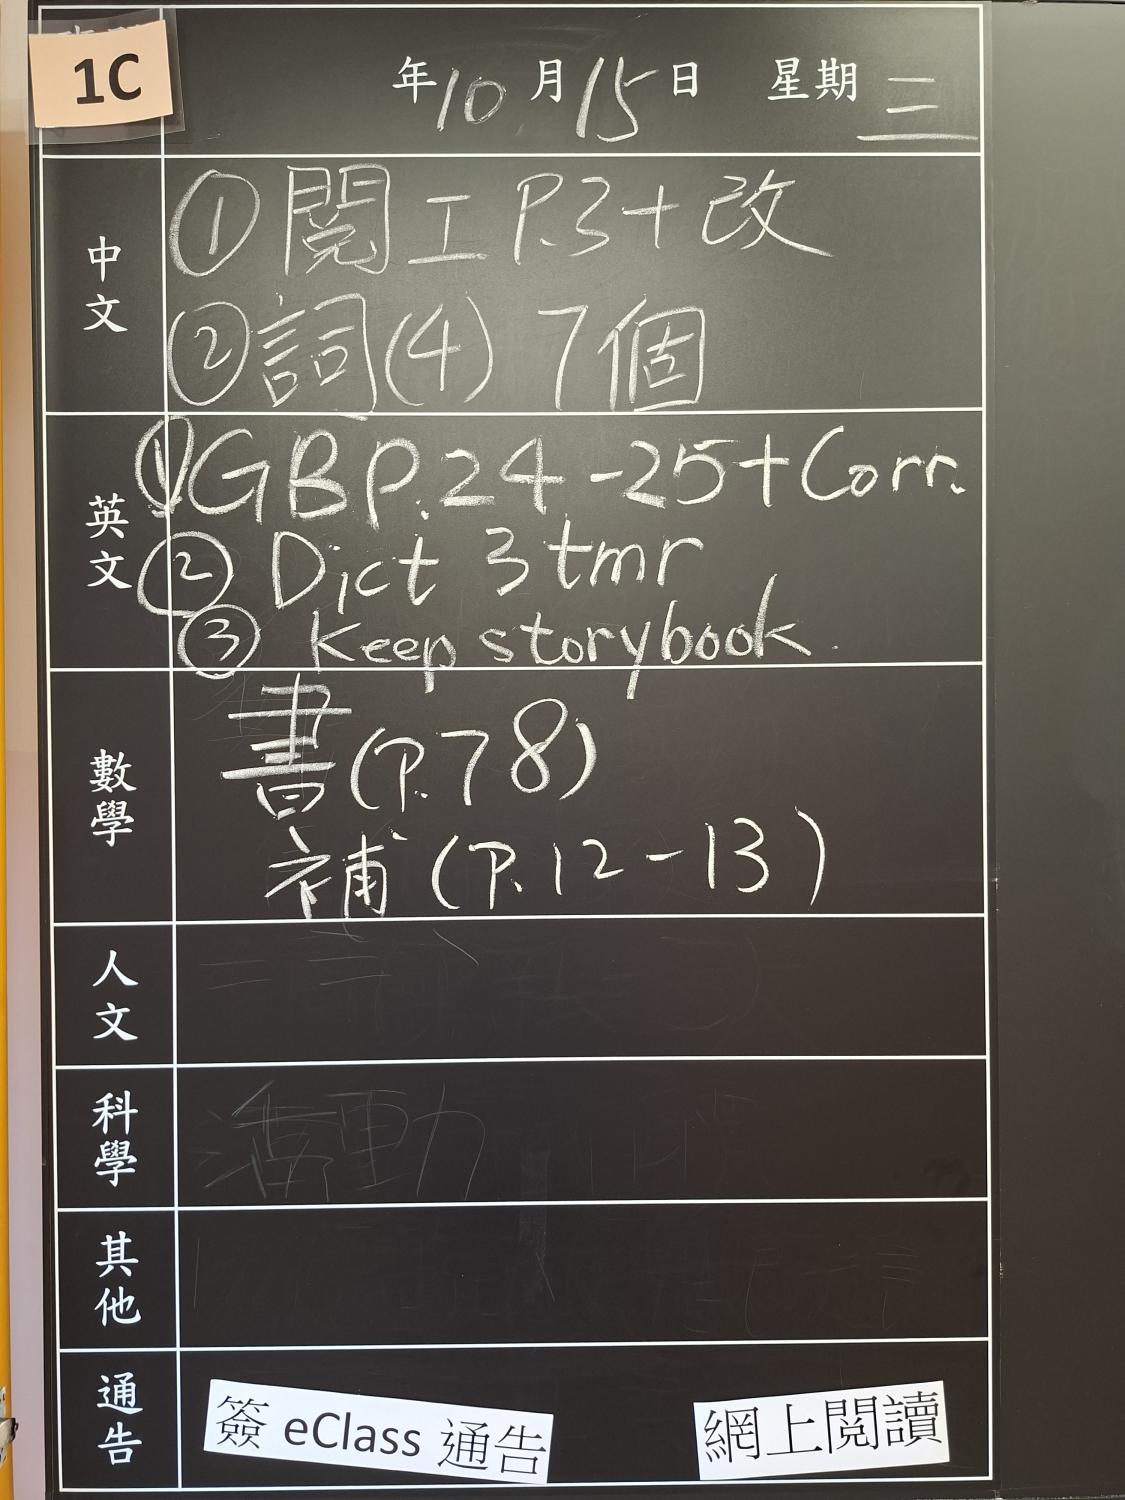 1C
年10月15日 星期三
中文
①閱工 P.3+改
②詞(4) 7個
英文
①GB P.24-25+Corr.
② Dict 3 tmr
③ Keep storybook.
數學
書(P.78)
補(P.12-13)
人文
科學
活動
其他
通告
簽 eClass 通告
網上閱讀